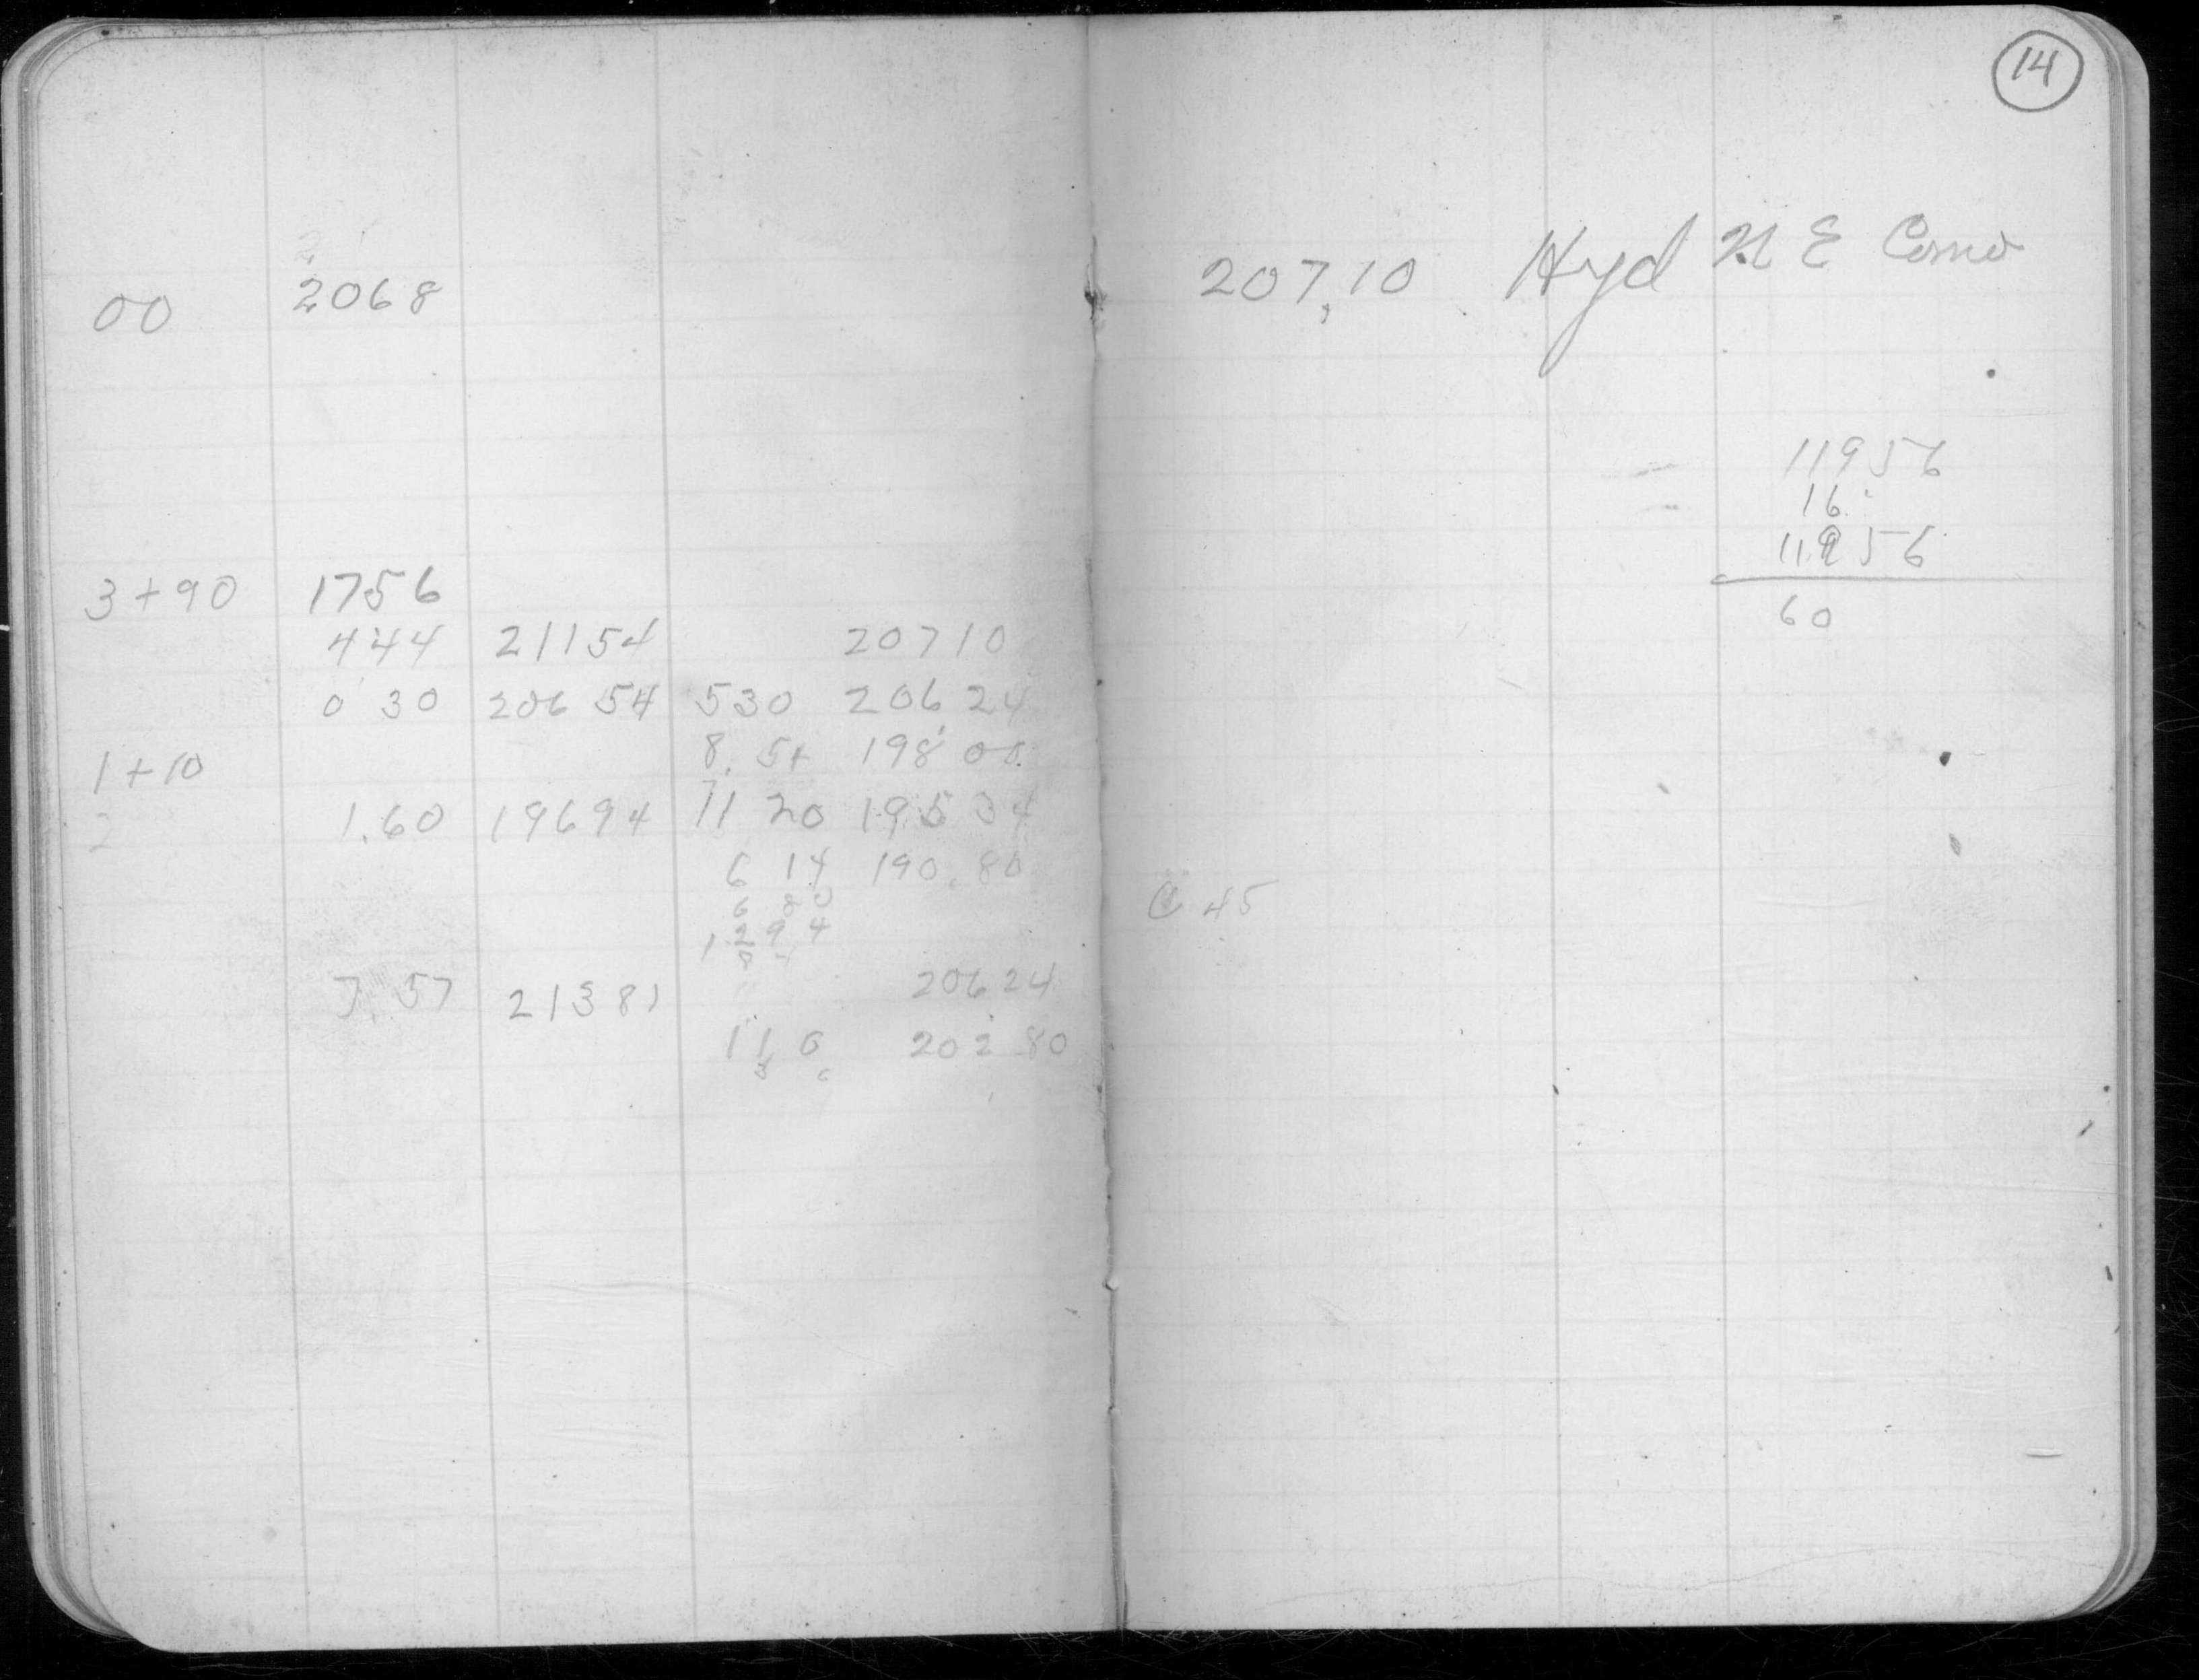 14
00 2068
207.10 Hyd N E Como
11956
16
11956
60
3+90 1756
444 21154 20710
0 30 206 54 530 206 24
1+10 8.54 198 00
2 1.60 19694 11 20 195 34
6 14 190.80
6 80
1 294
C 45
7.57 21381 206 24
11 0 202 80